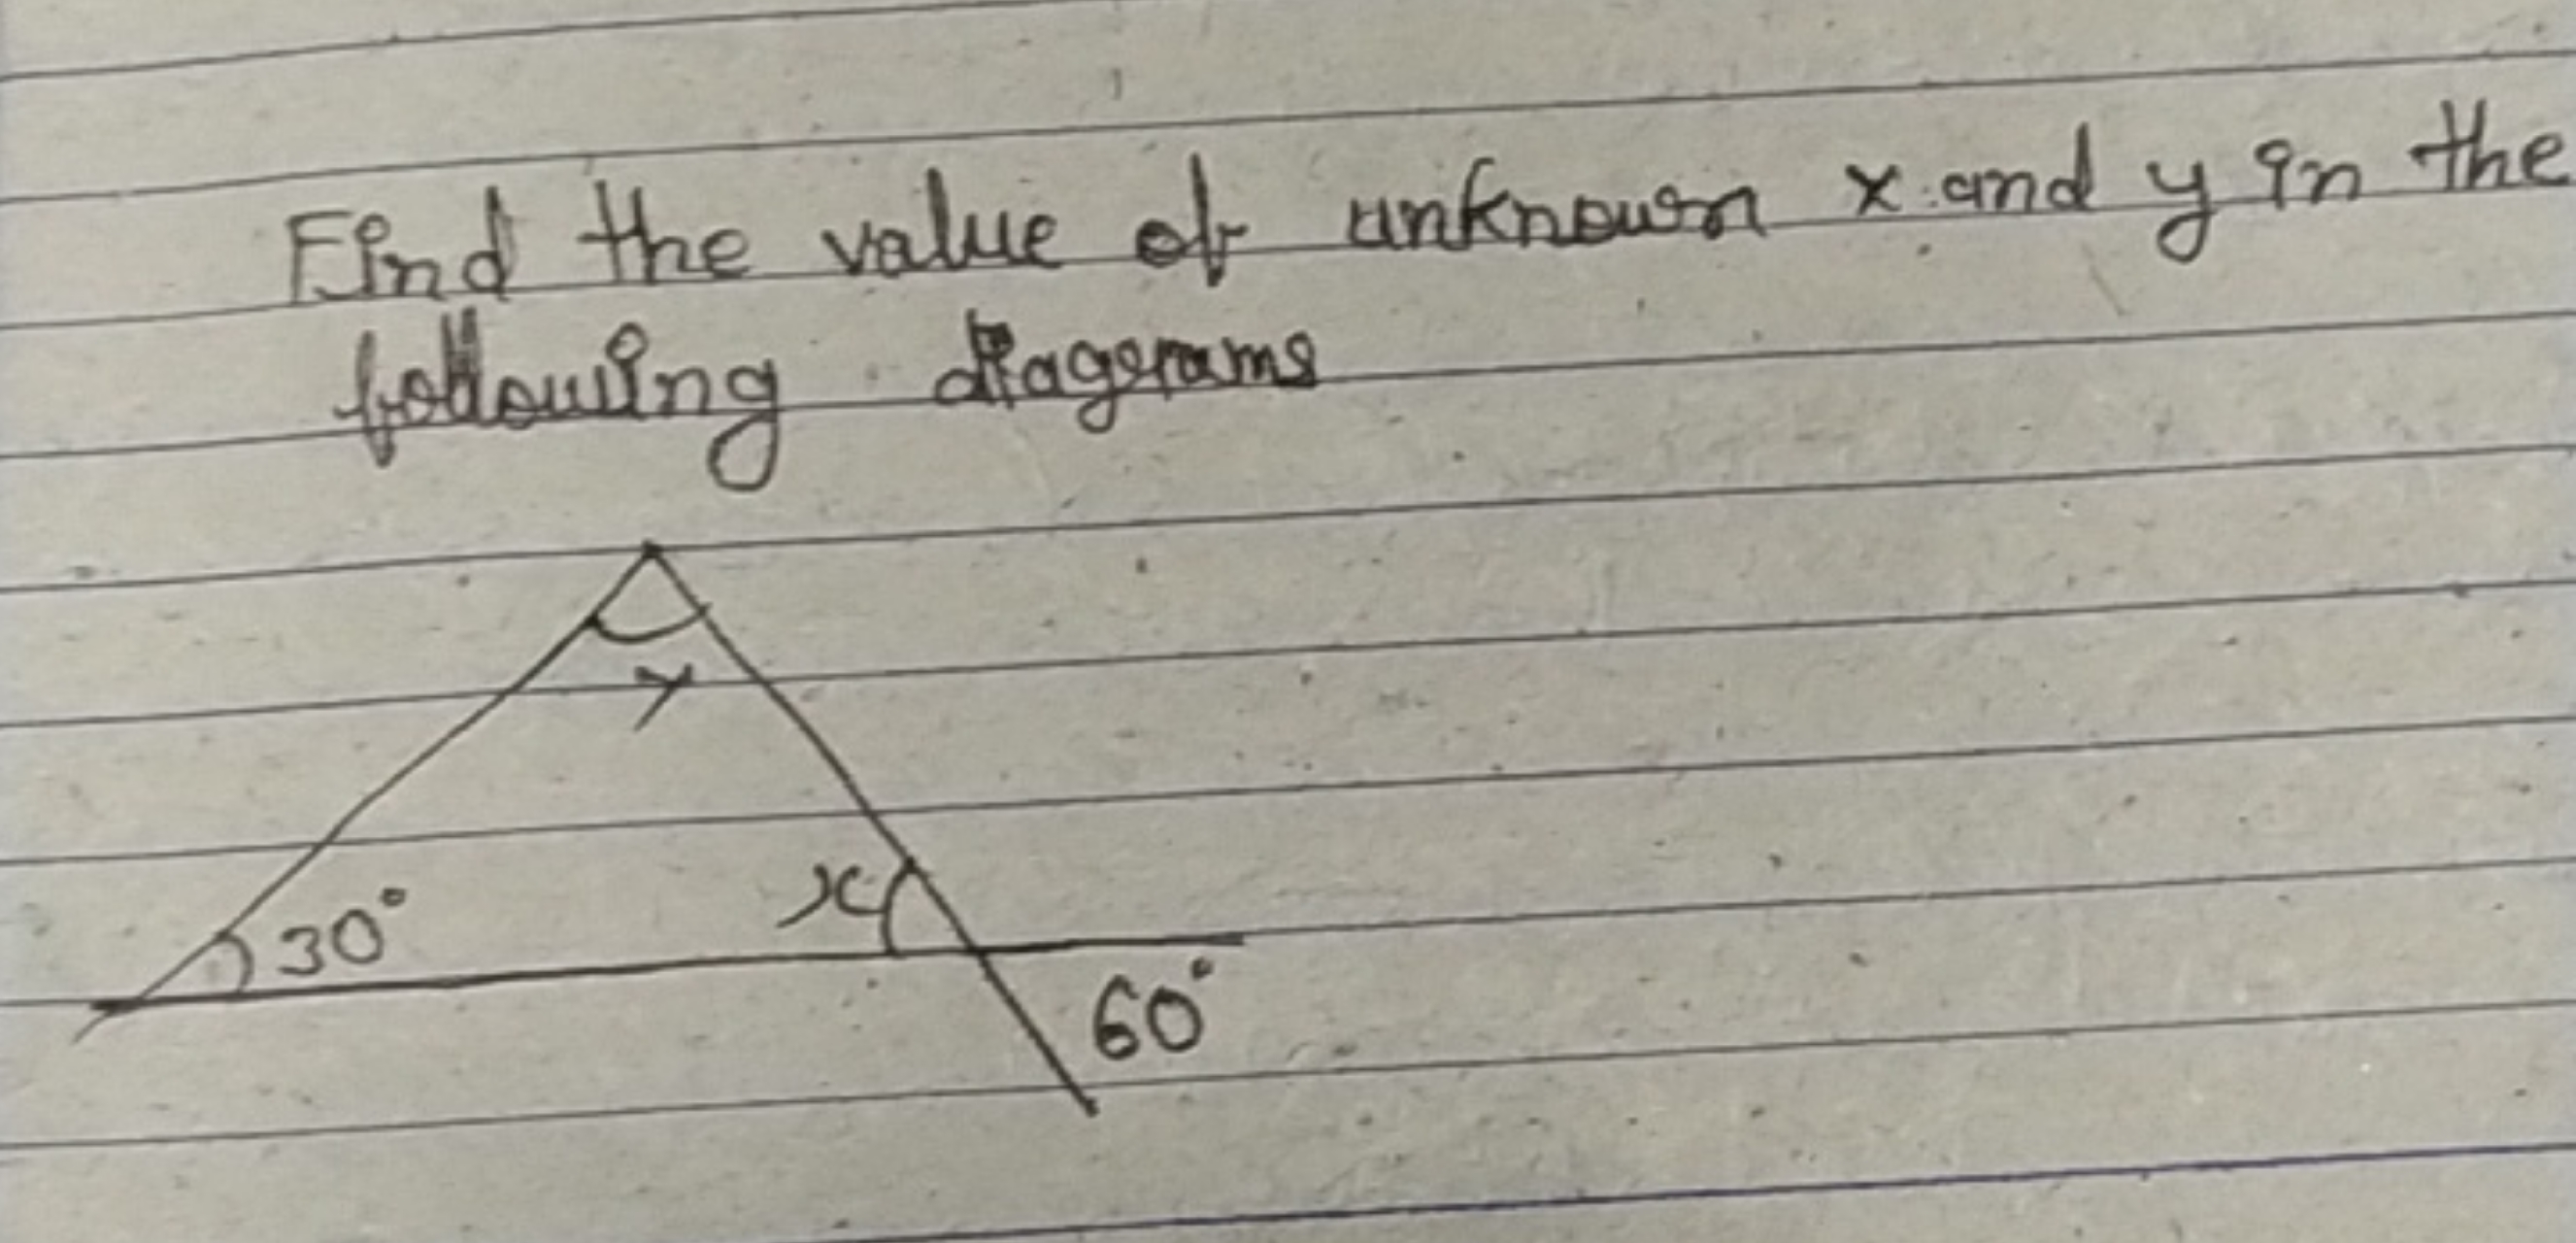 Find the value of unknown x and y in the
following diagrams
y
x
30°
60°